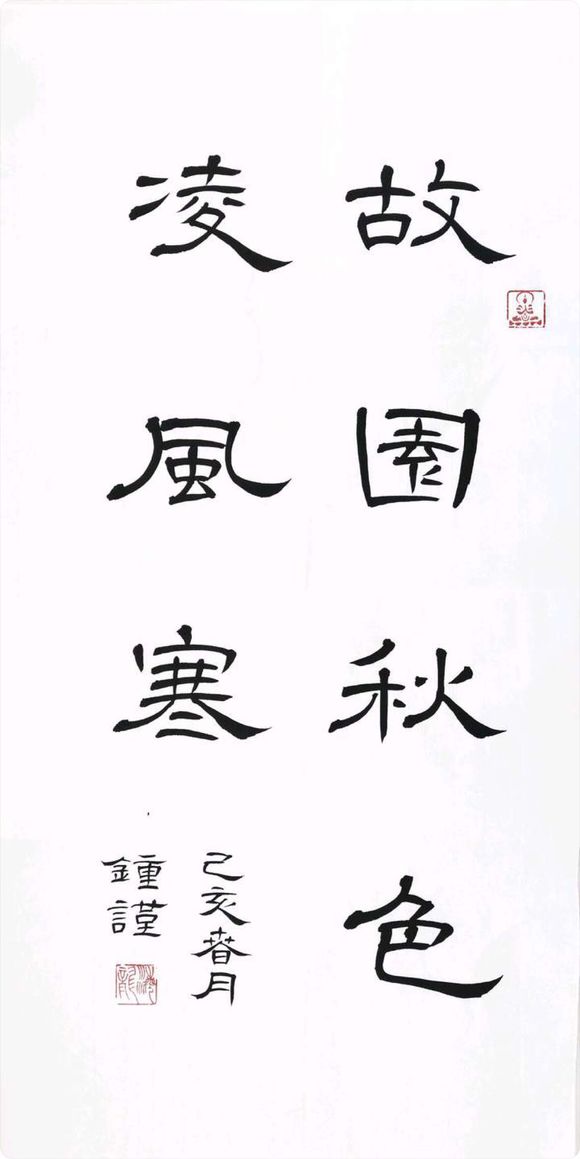 故園秋色
凌風寒
己亥春月
鍾謹